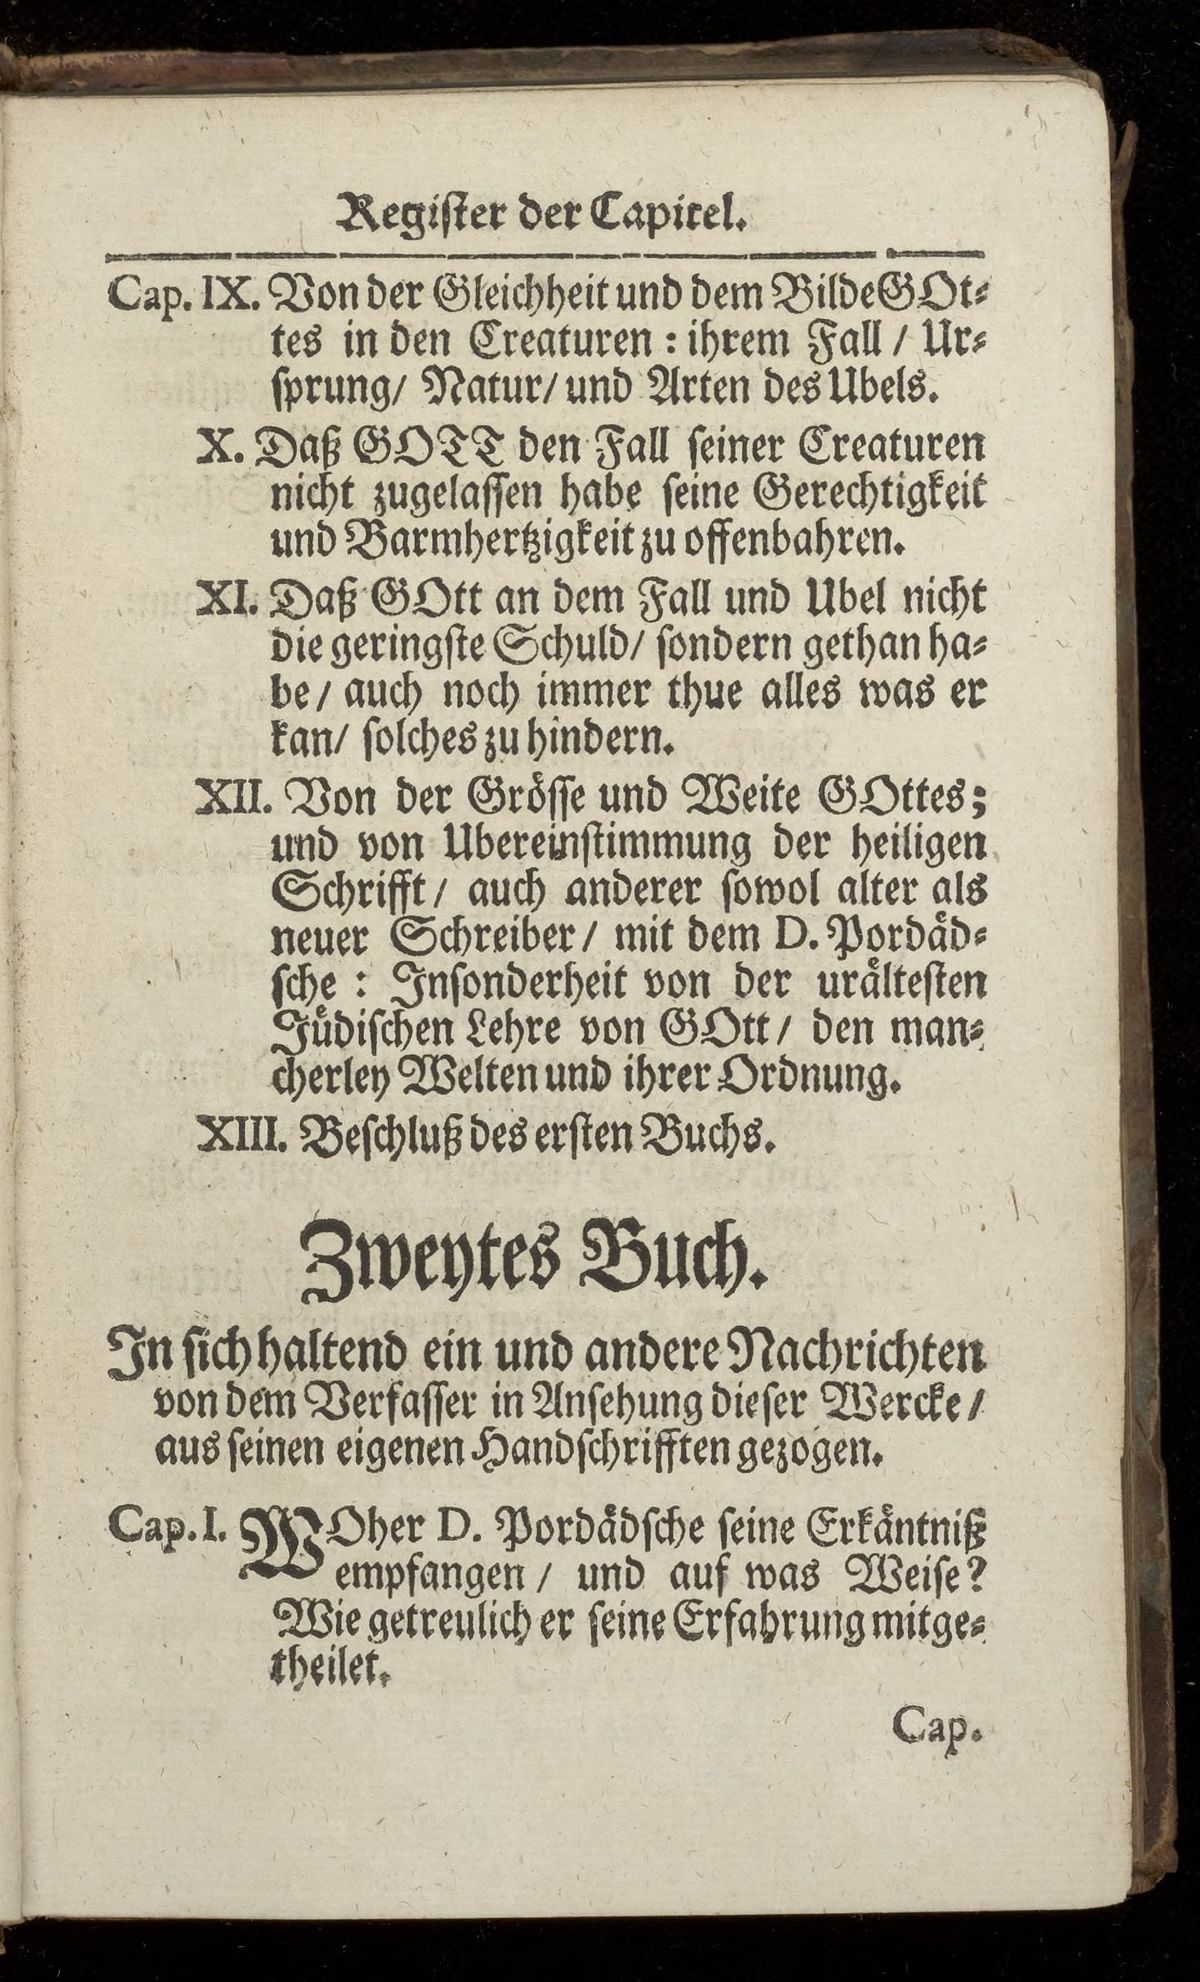 Register der Capitel.
Cap. IX. Von der Gleichheit und dem Bilde GOt-
tes in den Creaturen : ihrem Fall / Ur-
sprung / Natur / und Arten des Ubels.
X. Daß GOTT den Fall seiner Creaturen
nicht zugelassen habe seine Gerechtigkeit
und Barmhertzigkeit zu offenbahren.
XI. Daß GOtt an dem Fall und Ubel nicht
die geringste Schuld / sondern gethan ha-
be / auch noch immer thue alles was er
kan / solches zu hindern.
XII. Von der Grösse und Weite GOttes;
und von Ubereinstimmung der heiligen
Schrifft / auch anderer sowol alter als
neuer Schreiber / mit dem D. Pordäd-
sche : Insonderheit von der urältesten
Jüdischen Lehre von GOtt / den man-
cherley Welten und ihrer Ordnung.
XIII. Beschluß des ersten Buchs.
Zweytes Buch.
In sich haltend ein und andere Nachrichten
von dem Verfasser in Ansehung dieser Wercke /
aus seinen eigenen Handschrifften gezogen.
Cap. I. WOher D. Pordädsche seine Erkäntniß
empfangen / und auf was Weise?
Wie getreulich er seine Erfahrung mitge-
theilet.
Cap.